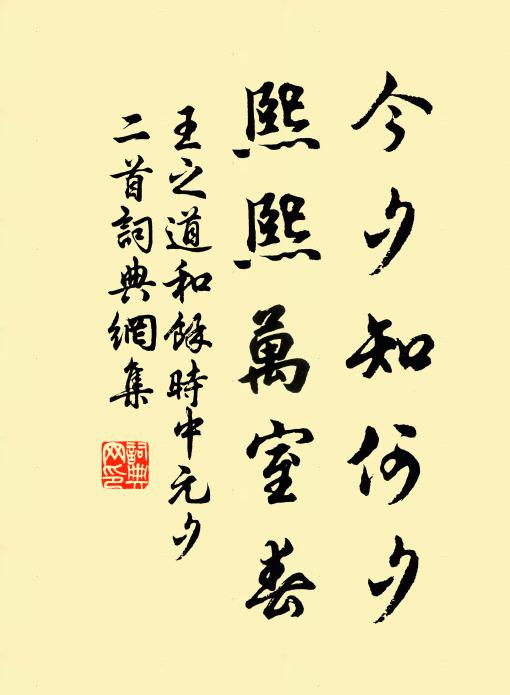 今夕知何夕
熙熙萬室春
王之道和餘時中元夕
二首詞典網集
詞典網印